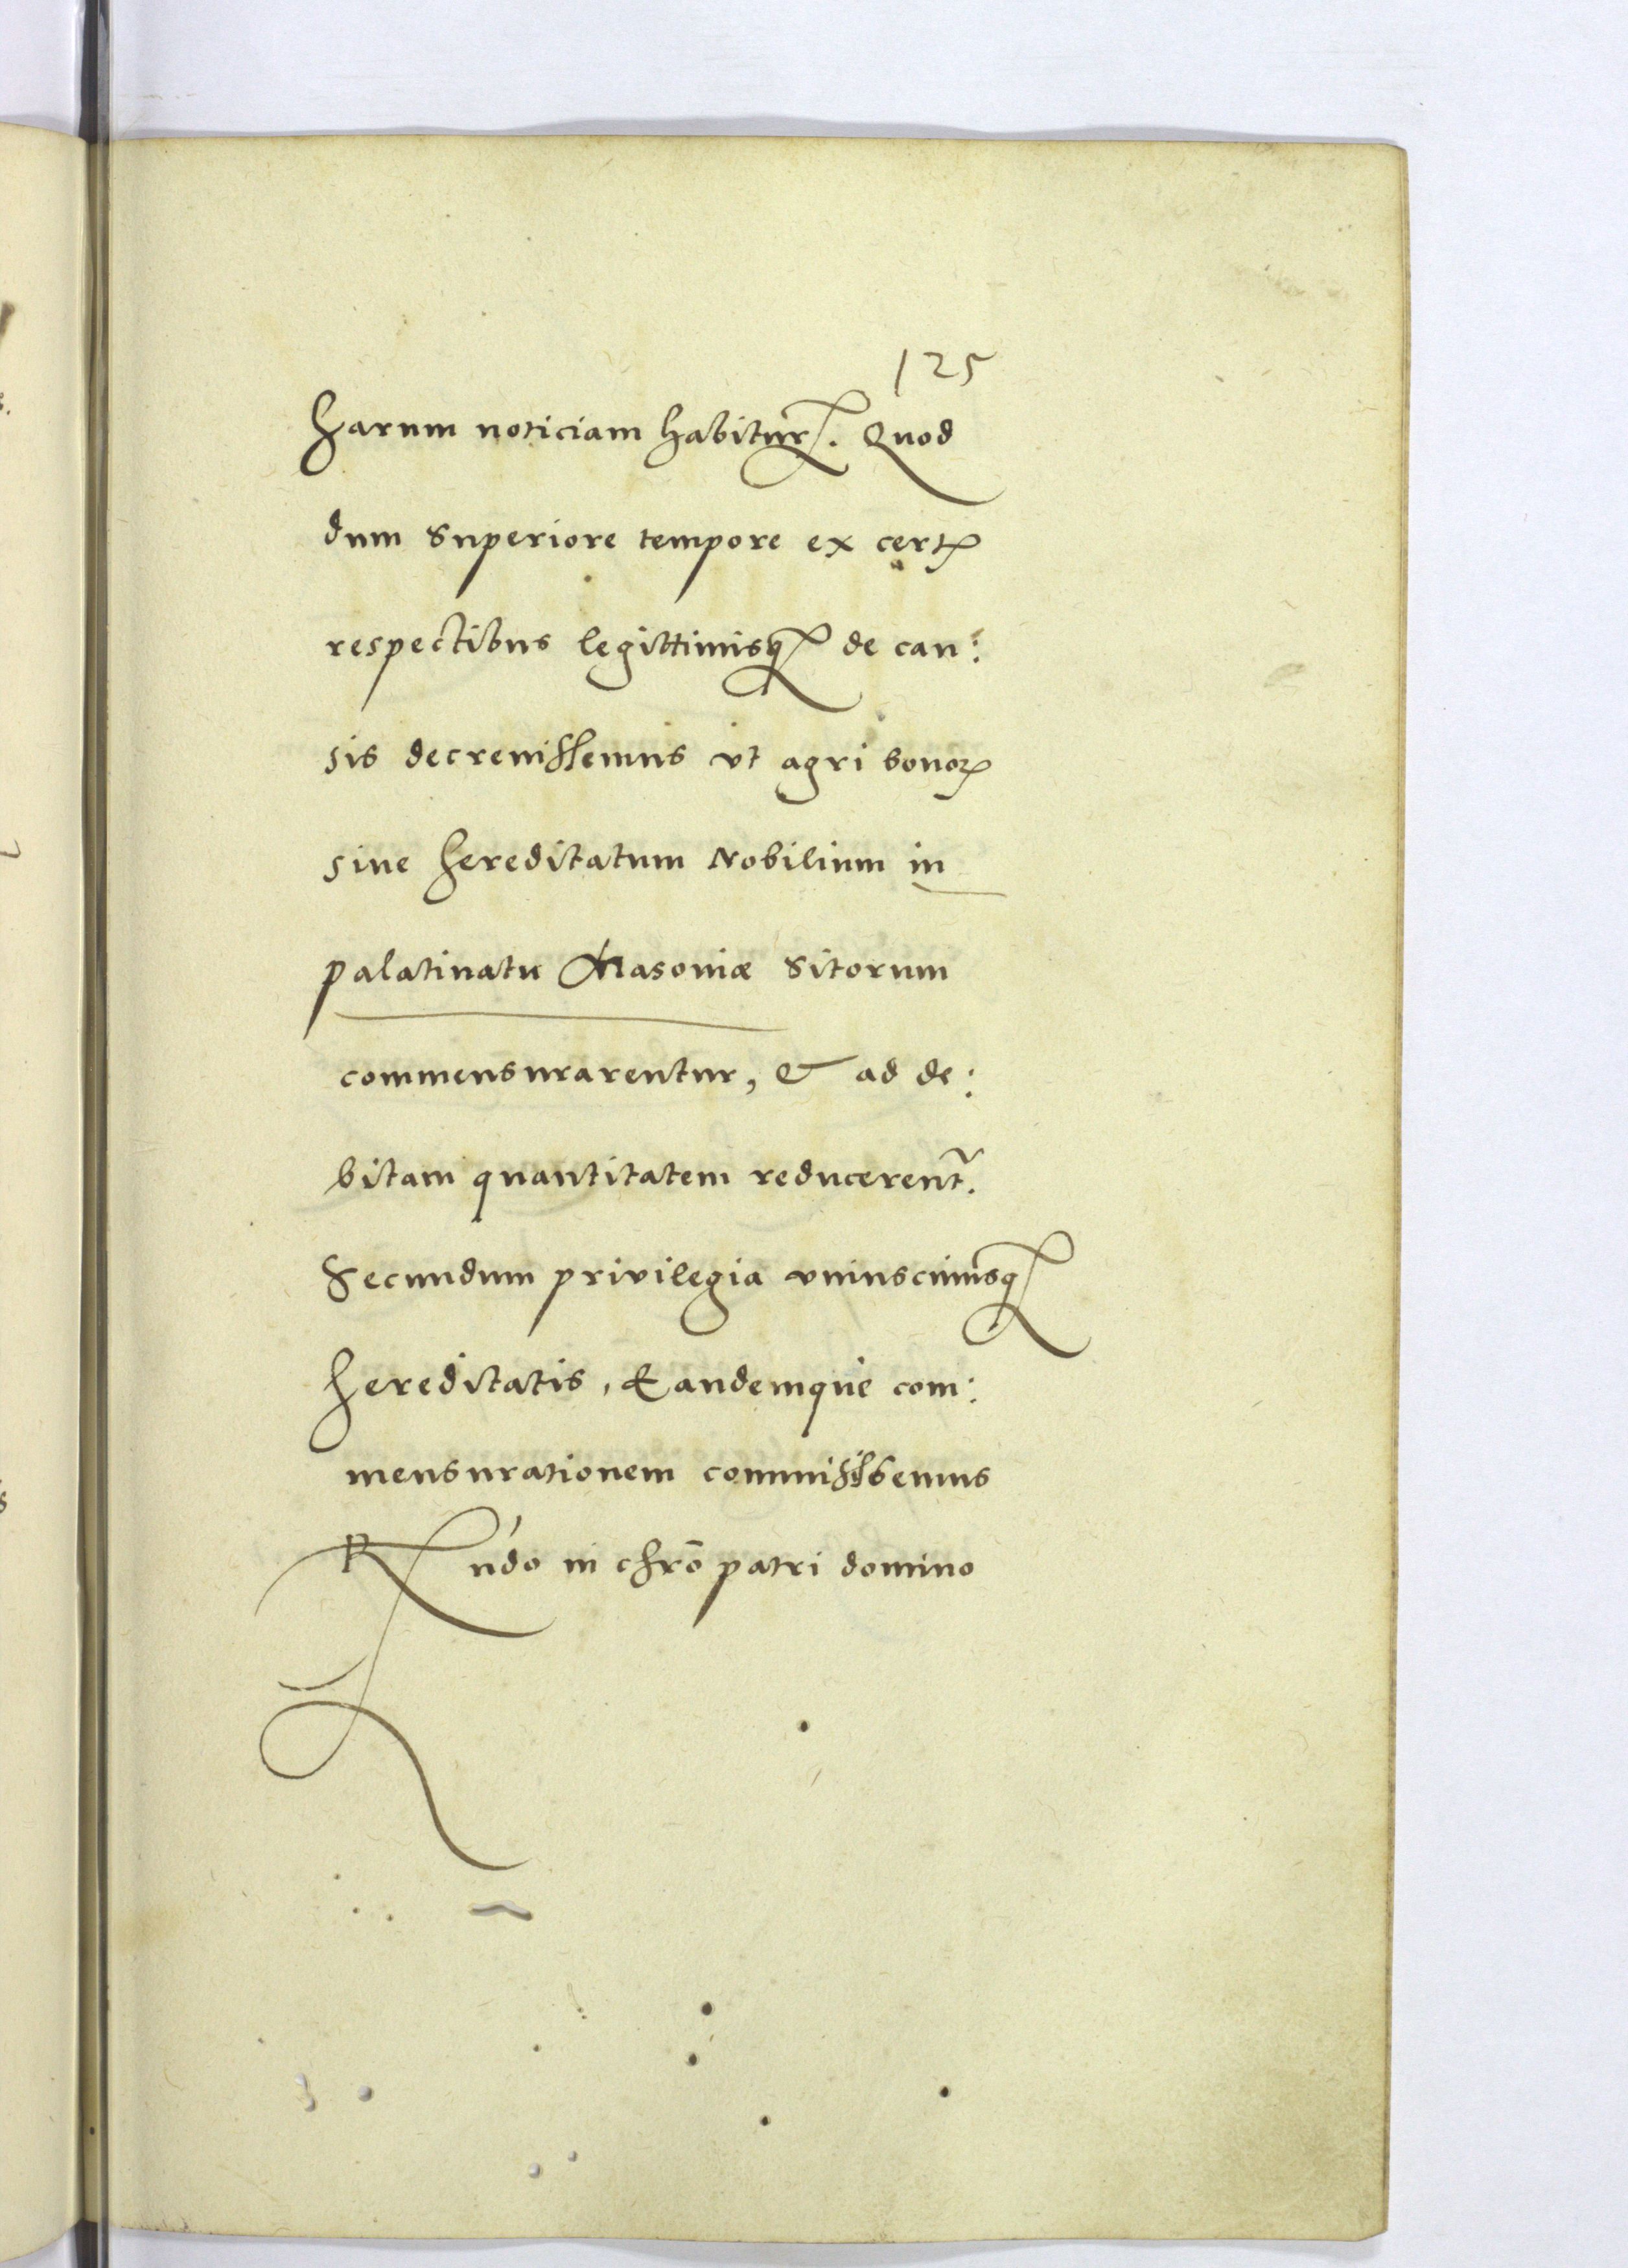 125
harum noticiam habitur͂. Quod
dum superiore tempore ex certꝭ
respectibus legittimisqꝫ de cau:
sis decreuissemus vt agri bonoꝝ
siue hereditatum Nobilium in
palatinatu Masoniæ sitorum
commensurarentur, & ad de:
bitam quantitatem reducerent᷑.
Secundum privilegia vniuscuiusqꝫ
hereditatis, Eandemque com:
mensurationem commississemus
Rndo in chrō patri domino